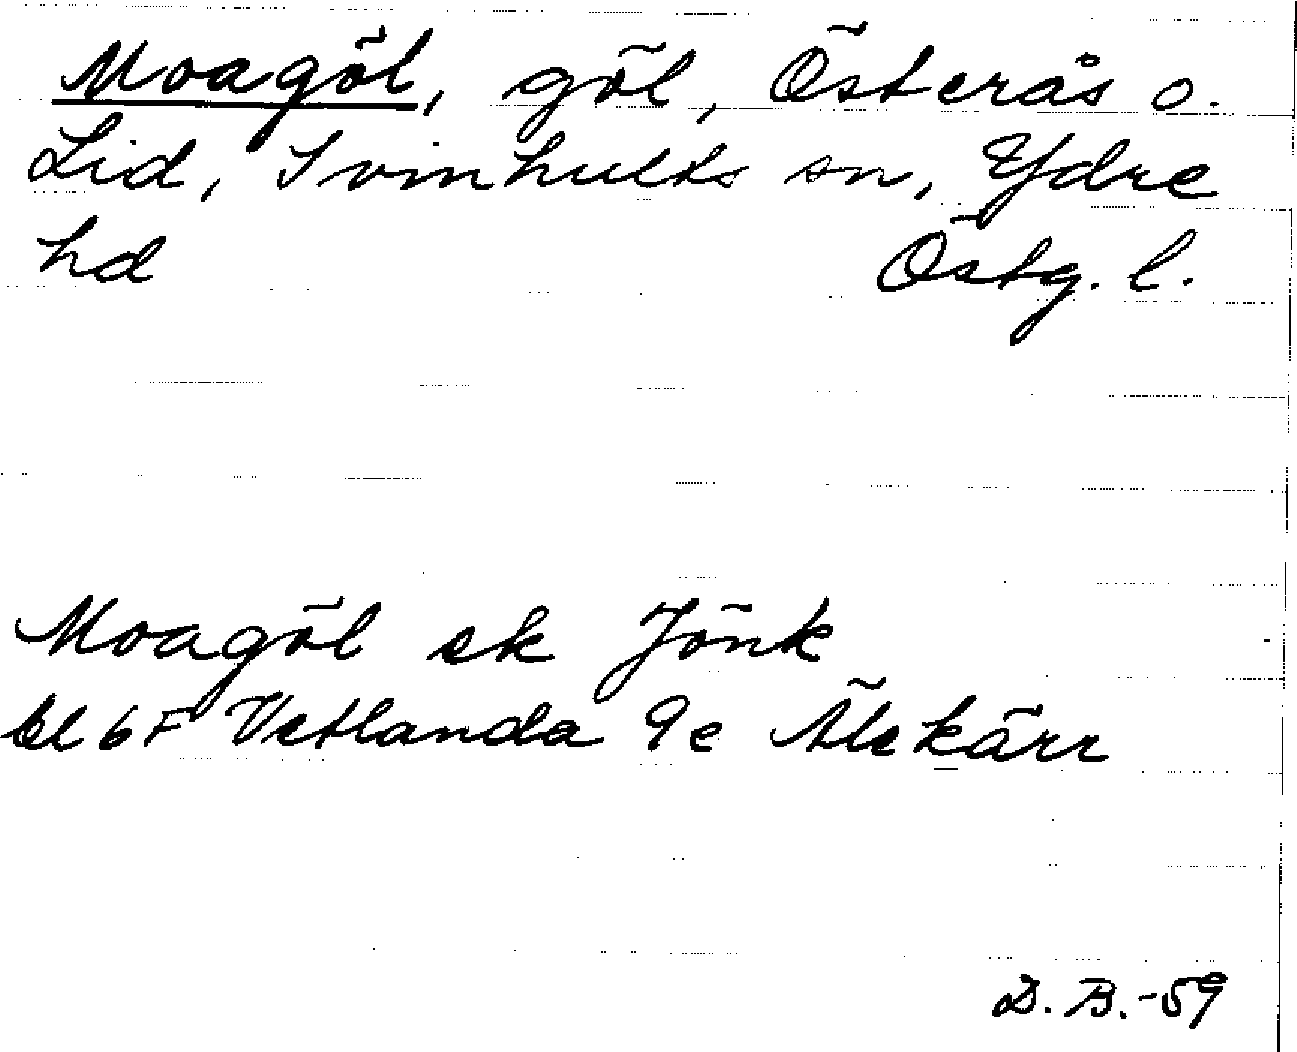 Moagöl, göl, Österås o.
Lid, Svinhults sn, Ydre
hd Östg. l.
Moagöl ek Jönk
bl 6F Vetlanda 9e Älekärr
D. B. -59